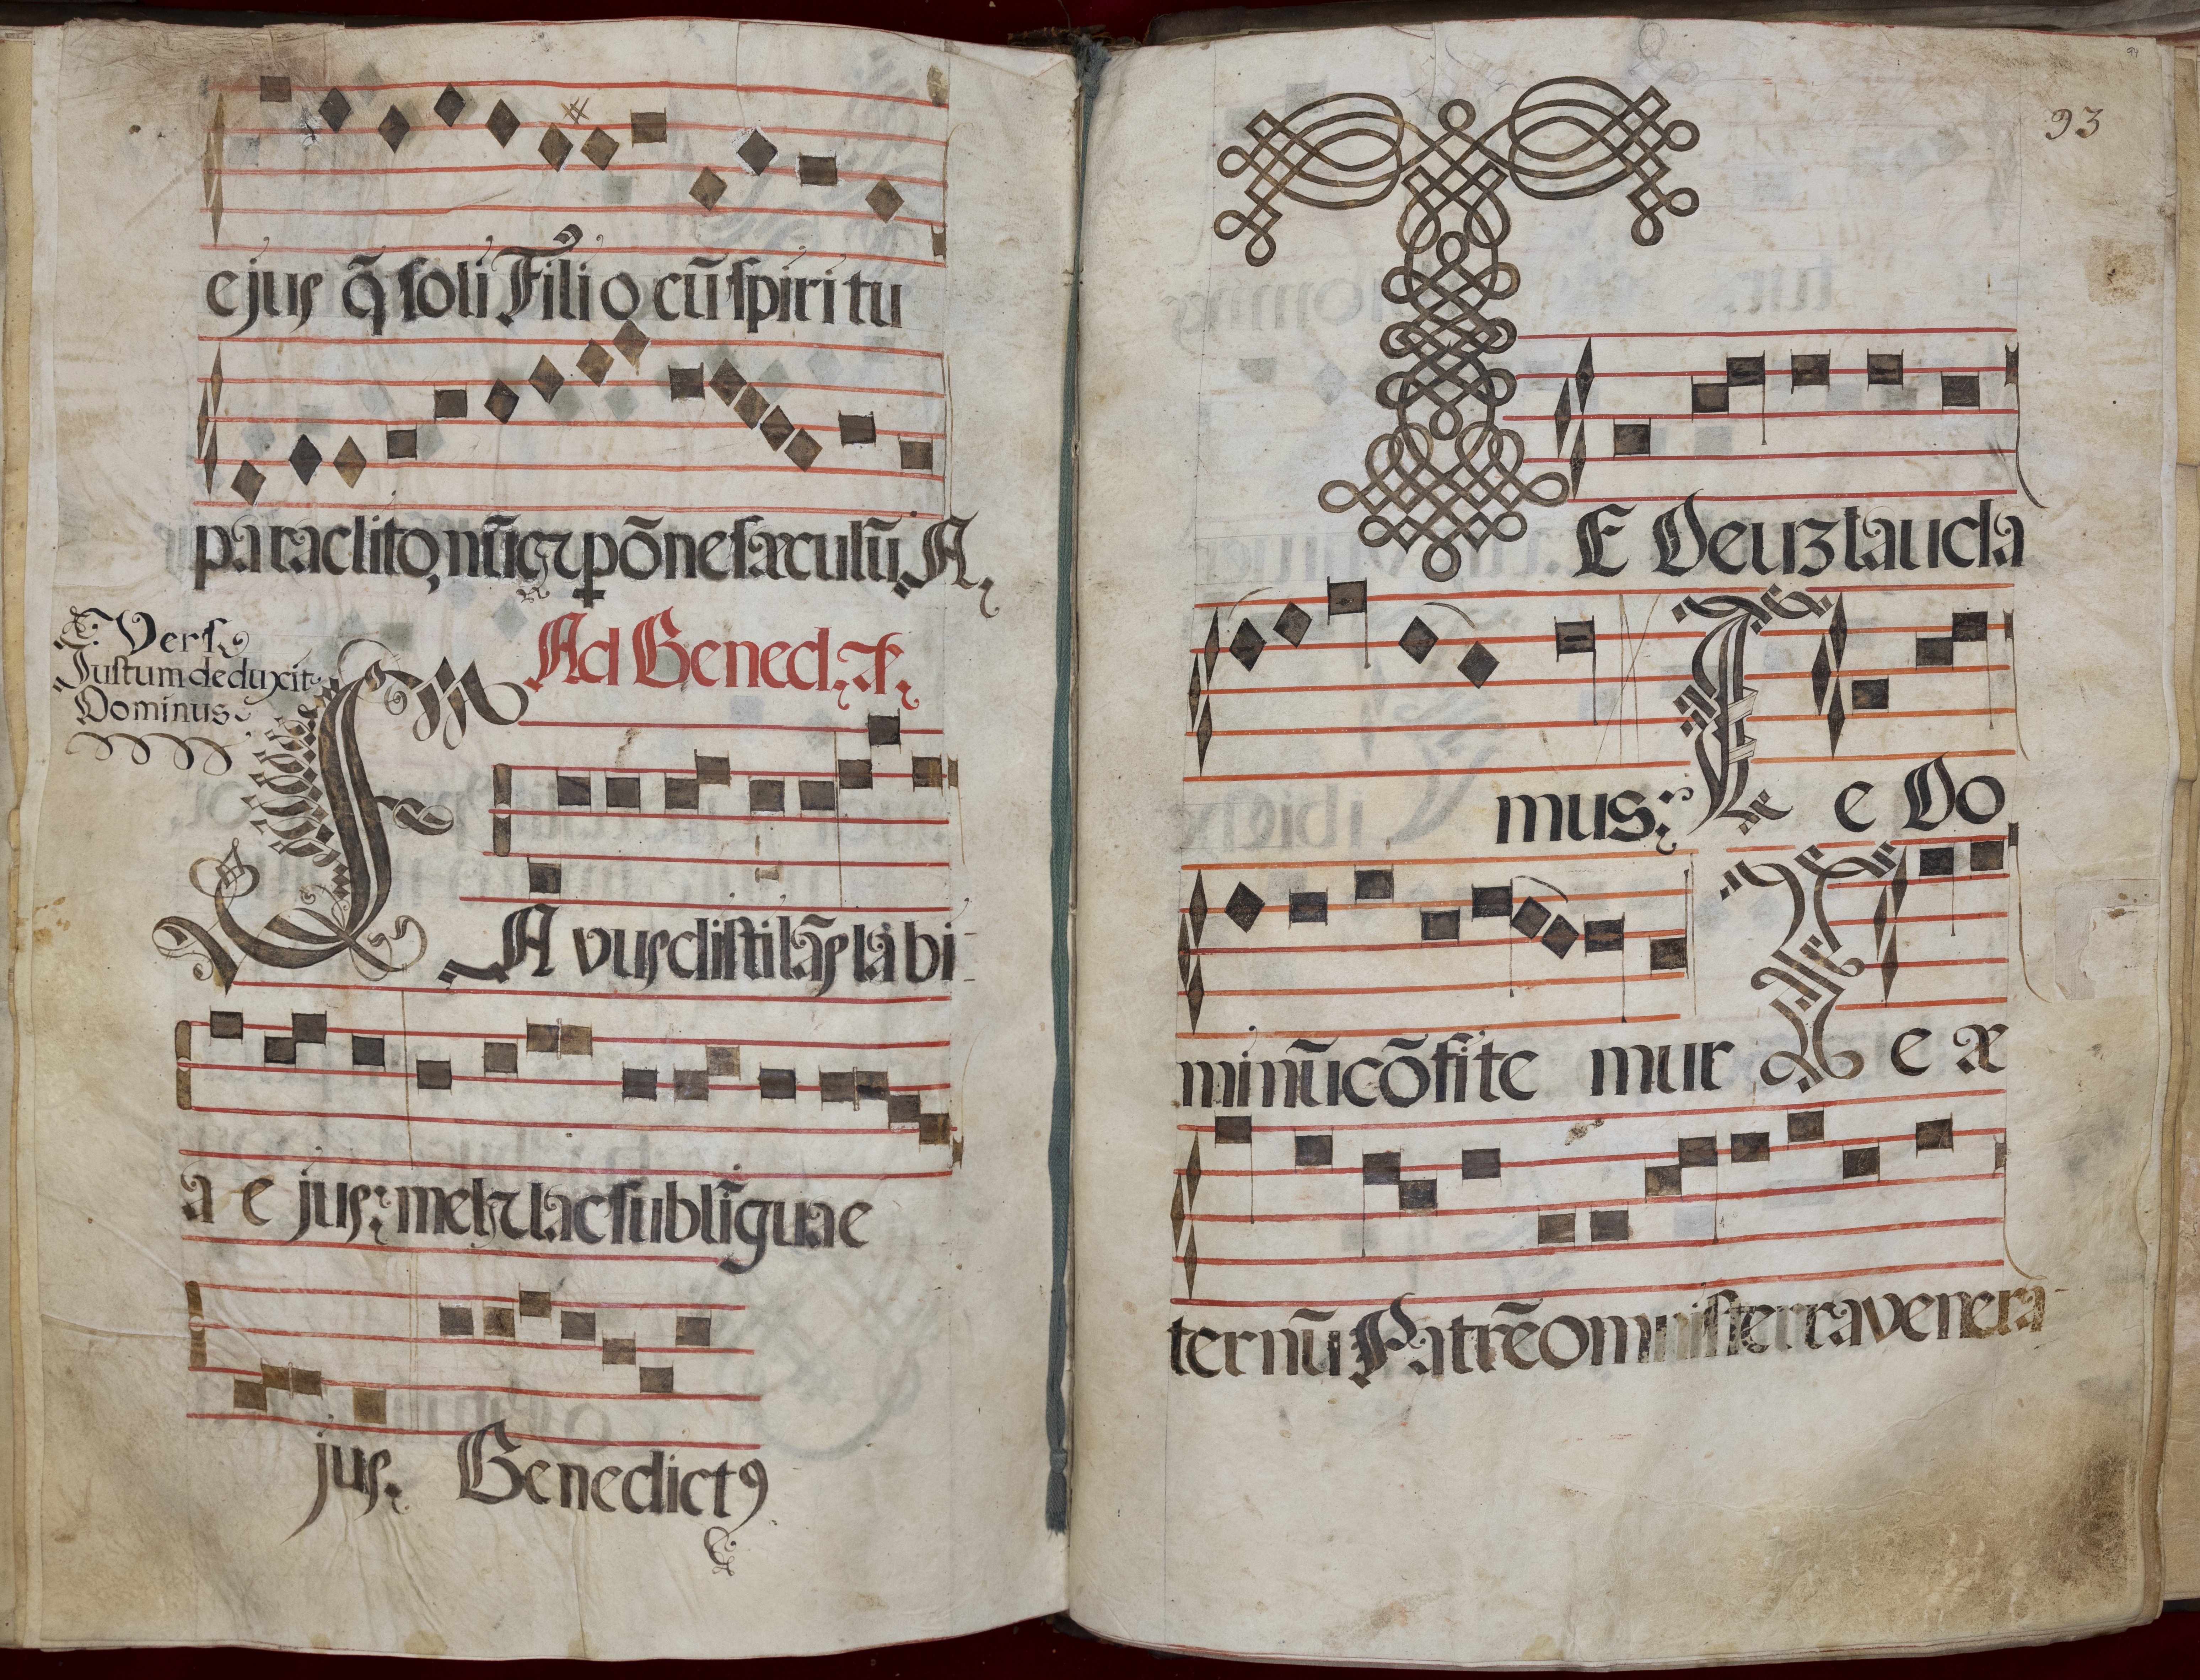 ejus q̃ soli Filio cũ spiritu
paraclito, nũc, ꝛ põne sæculũ. A.
Vers.
Justum deduxit
Dominus.
Ad Bened. Añ.
FAvus distilãs labi-
a ejus: mel ꝛ lac sub lĩgua e
jus. Benedictꝰ
93
TE Deuz lauda
mus: Te Do
minũ cõfitemur Te æ
ternũ Patrẽ omnis terra venera-